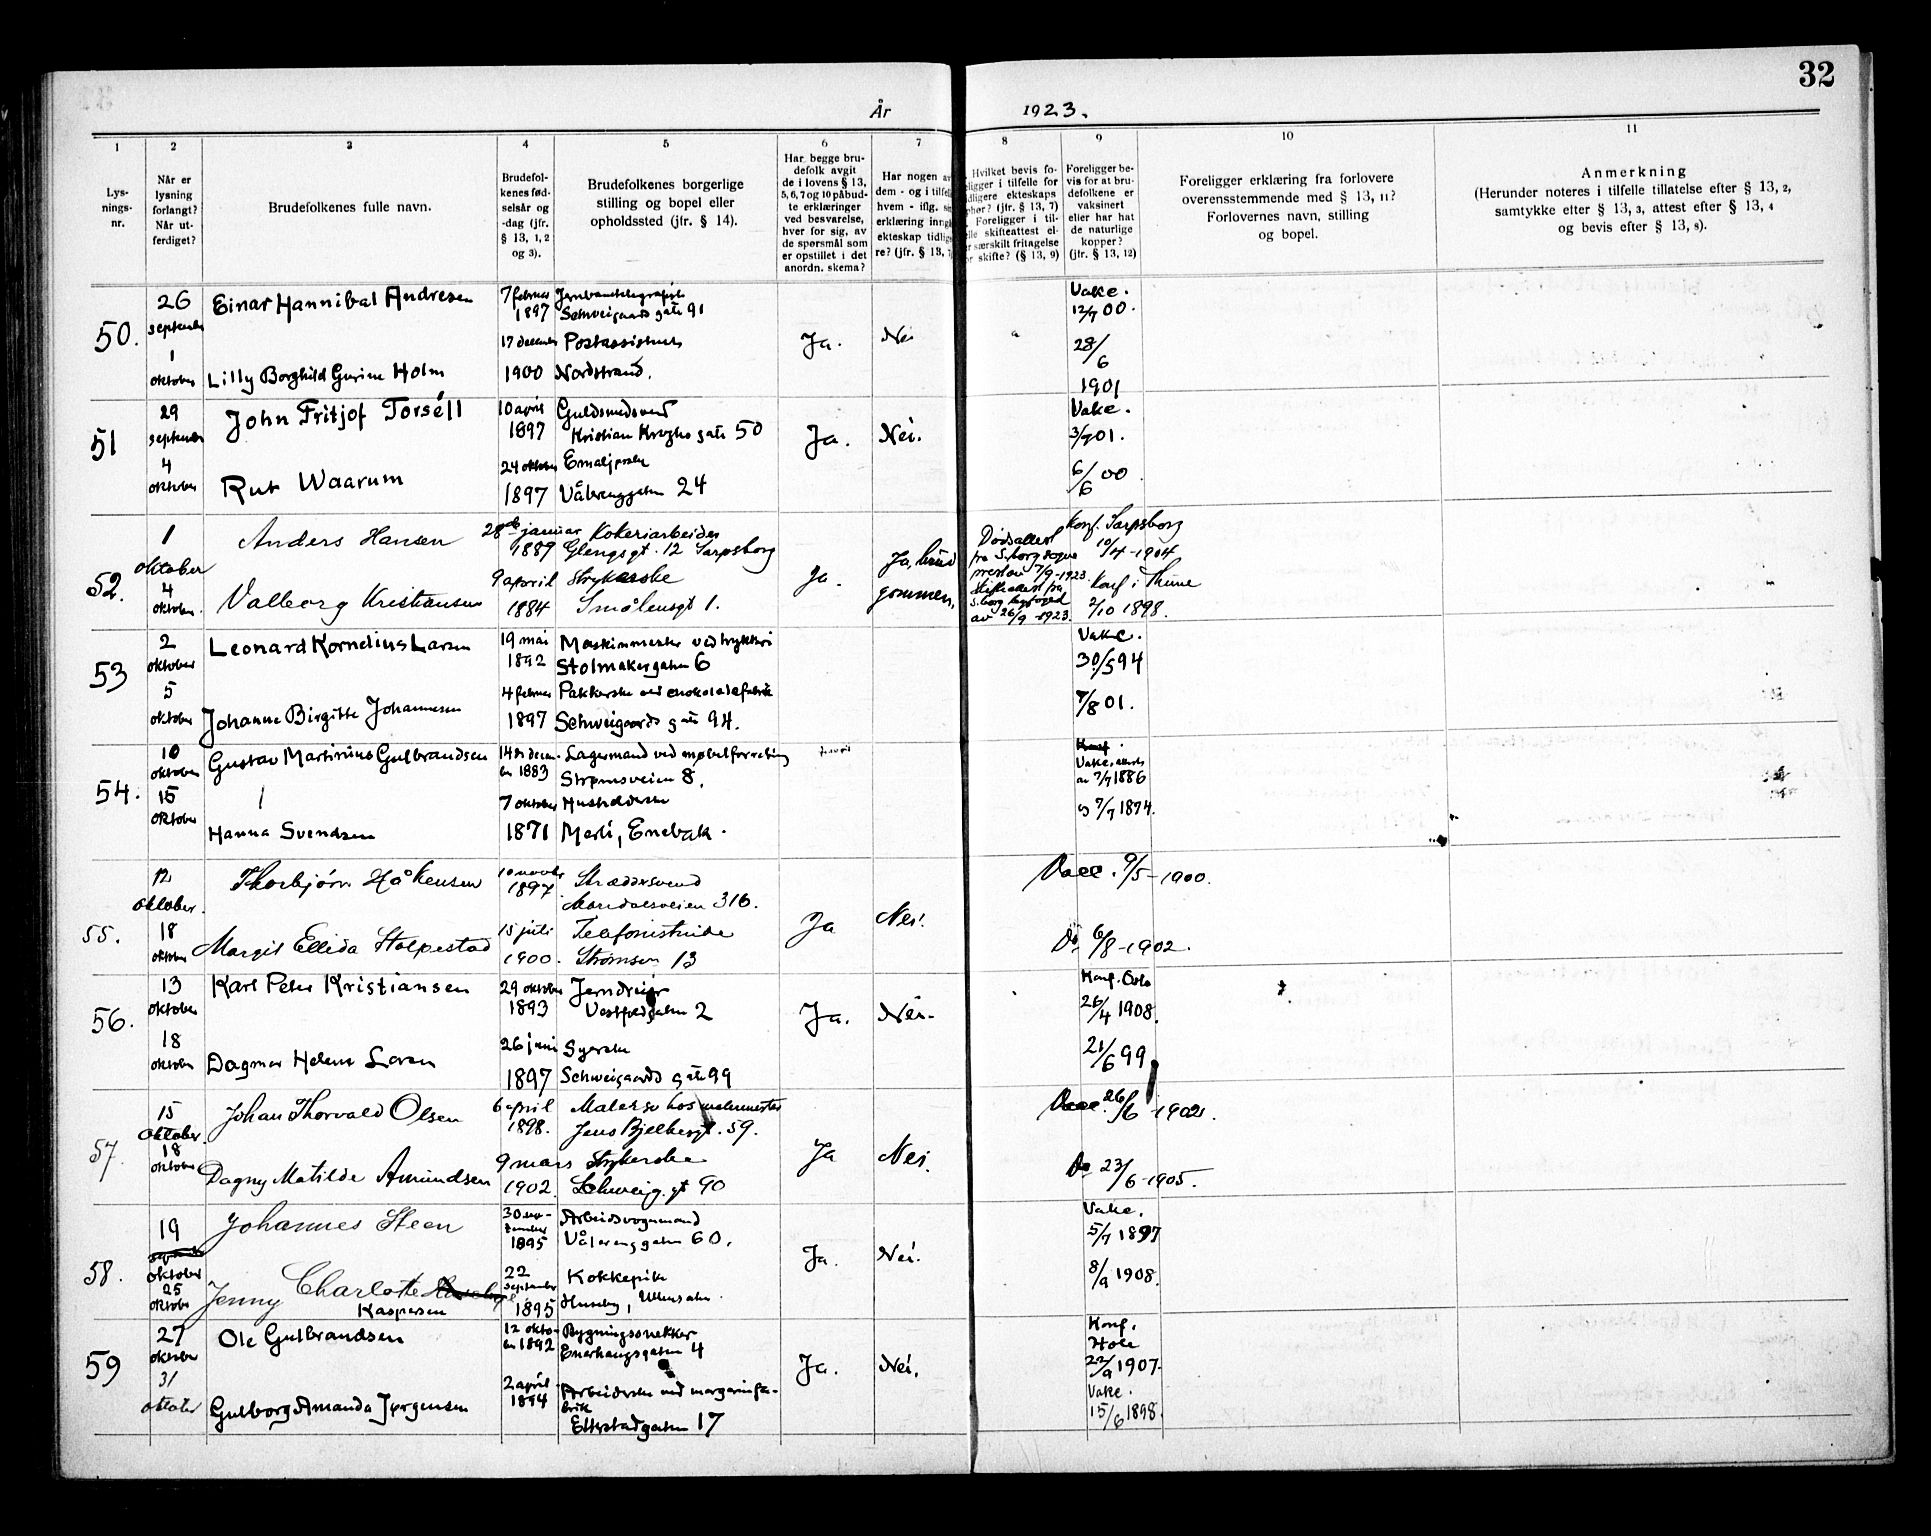 32
År 1923.
1 2 3 4 5 6 7 8 9 10 11
Lys-
nings-
nr.
Når er
lysning
forlangt?
Når ut-
ferdiget?
Brudefolkenes fulle navn.
Brudefol-
kenes fød-
selsår og
-dag (jfr.
§ 13, 1, 2
og 3).
Brudefolkenes borgerlige
stilling og bopel eller
opholdssted (jfr. § 14).
Har begge bru-
defolk avgit
de i lovens § 13,
5, 6, 7 og 10 påbud-
te erklæringer
ved besvarelse,
hver for sig, av
de spørsmål som
er opstillet i det
anordn. skema?
Har nogen av
dem - og i tilfelle
hvem - iflg. sin
erklæring inngå
ekteskap tidlige
re? (jfr. § 13, 7
Hvilket bevis fo-
eligger i tilfelle for
dligere ekteskaps
phør? (jfr. § 13, 7)
Foreligger i til-
elle skifteattest el-
r særskilt fritagelse
or skifte? (§ 13, 9)
Foreligger be-
vis for at bru-
defolkene er
vaksinert
eller har hat
de naturlige
kopper?
(jfr. § 13, 12)
Foreligger erklæring fra forlovere
overensstemmende med § 13, 11?
Forlovernes navn, stilling
og bopel.
Anmerkning
(Herunder noteres i tilfelle tillatelse efter § 13, 2,
samtykke efter § 13, 3, attest efter § 13, 4
og bevis efter § 13, 8).
50.
26
september
1
oktober
Einar Hannibal Andresen
7 februar
1897
Schweigaards gate 91
Lilly Borghild Gurine Holm
17 december
1900
Nordstrand.
Ja.
Nei
Vakc.
12/7 00.
28/
6
1901
51
29
september
4
oktober
John Fritjof Torséll
10 april
1897
Guldsmedsvend
Kristian Kroghs gate 50
Rut Waarum
24 oktober
1897
Vålerenggaten 24
Ja.
Nei.
Vakc.
3/7 01.
6/6 00
52.
1
oktober
4
oktober.
Anders Hansen
28de januar
1889
Kokeriarbeider
Glengsgt. 12 Sarpsborg
Valborg Kristiansen
9 april
1884
Strykerske
Smålensgt 1.
Ja.
Ja, brud
gommen.
Dødsattest
fra S.borg sogne
prest av 7/9-1923.
Skifteattest fra
S.borg byfoged
av 26/9-1923.
Konf. Sarpsborg
10/4-1904
Konf. i
2/10 1898.
53
2
oktober
5
oktober
Leonard Kornelius Larsen
19 mai
1892
Maskinmester ved trykkeri
Stolmakergaten 6
Johanne Birgitte Johannesen
4 februar
1897
Pakkerske ved chokoladefabrik
Schweigaards gate 94.
Vakc.
30/5 94
7/8 01.
54.
10
oktober
15
oktober
Gustav Martinius Gulbrandsen
14de decem-
ber 1883
Lagermand ved møbelforretning
Strømsveien 8.
Hanna Svendsen
7 oktober
1871
Husholderske
Merli, Enebak.
Konf.
av 7/7 1886
og 7/7 1874.
55.
12
oktober.
18
oktober
Thorbjørn Håkensen
10 novbr
1897.
Skræddersvend
Maridalsveien 316.
Margit Ellida Stolpestad
15 juli
1900.
Telefonistinde
Strømsv 13
Ja
Nei.
Vacc. 9/5-1900.
Do 6/8-1902.
56.
13
oktober
18
oktober
Karl Peter Kristiansen
29 oktober
1893
Jerndreier
Vestfoldgaten 2
Dagmar Helene Loren
26 juni
1897
Syerske
Schweigaards gate 99
Ja.
Nei.
Konf. Oslo
26/4 1908.
21/6 99
57.
15
oktober.
18
oktober
Johan Thorvald Olsen
6 april
1898.
Malersv hos malermester
Jens Bjelkesgt. 59.
Dagny Matilde Amundsen
9 mars
1902.
Strykerske
Schweig. gt 90
Ja
Nei.
Vacc. 26/6 1902.
Do 23/6-1905.
58.
19
oktober
25
oktober
Johannes Steen
30 no-
vember
1895
Arbeidsvognmand
Vålerenggaten 60.
Jenny Charlotte
Kaspersen
22
september
1895
Kokkepike
Huseby, Ullensaker.
Ja.
Nei.
Vakc.
5/7 1897
8/9 1908.
59
27
oktober
31
oktober
Ole Gulbrandsen
12 okto-
ber 1892
Bygningssnekker
Enerhaugsgaten 4
Gulborg Amanda Jørgensen
2 april
1894
Arbeiderske ved margarinfa-
brik
Etterstadgaten 17
Ja.
Nei.
Konf.
Hole
22/9 1907.
Vakc.
15/6 1898.